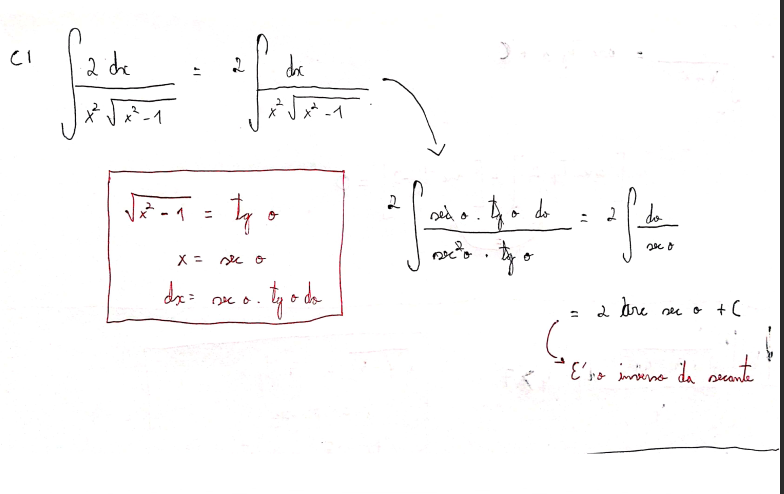 C1 ∫ 2 dx / x² √(x² - 1) = 2 ∫ dx / x² √(x² - 1)
√(x² - 1) = tg θ
x = sec θ
dx = sec θ . tg θ dθ
2 ∫ sec θ . tg θ dθ / sec² θ . tg θ = 2 ∫ dθ / sec θ
= 2 arc sec θ + C
É o inverso da secante